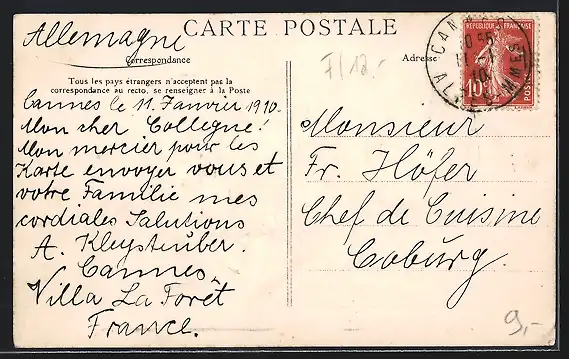 CARTE POSTALE
Allemagne
Correspondance
Tous les pays étrangers n'acceptent pas la
correspondance au recto, se renseigner à la Poste
Cannes le 11. Janvier 1910.
Mon cher Collegue!
Mon mercier pour les
Karte envoyer vous et
votre Familie mes
cordiales Salutions
A. Kleysteuber.
Cannes.
Villa La Forêt
France.
F/12.-
Adresse
REPUBLIQUE FRANÇAISE
10
POSTES
CANNES
ALPES
Monsieur
Fr. Höfer
Chef de Cuisine
Coburg.
9,-